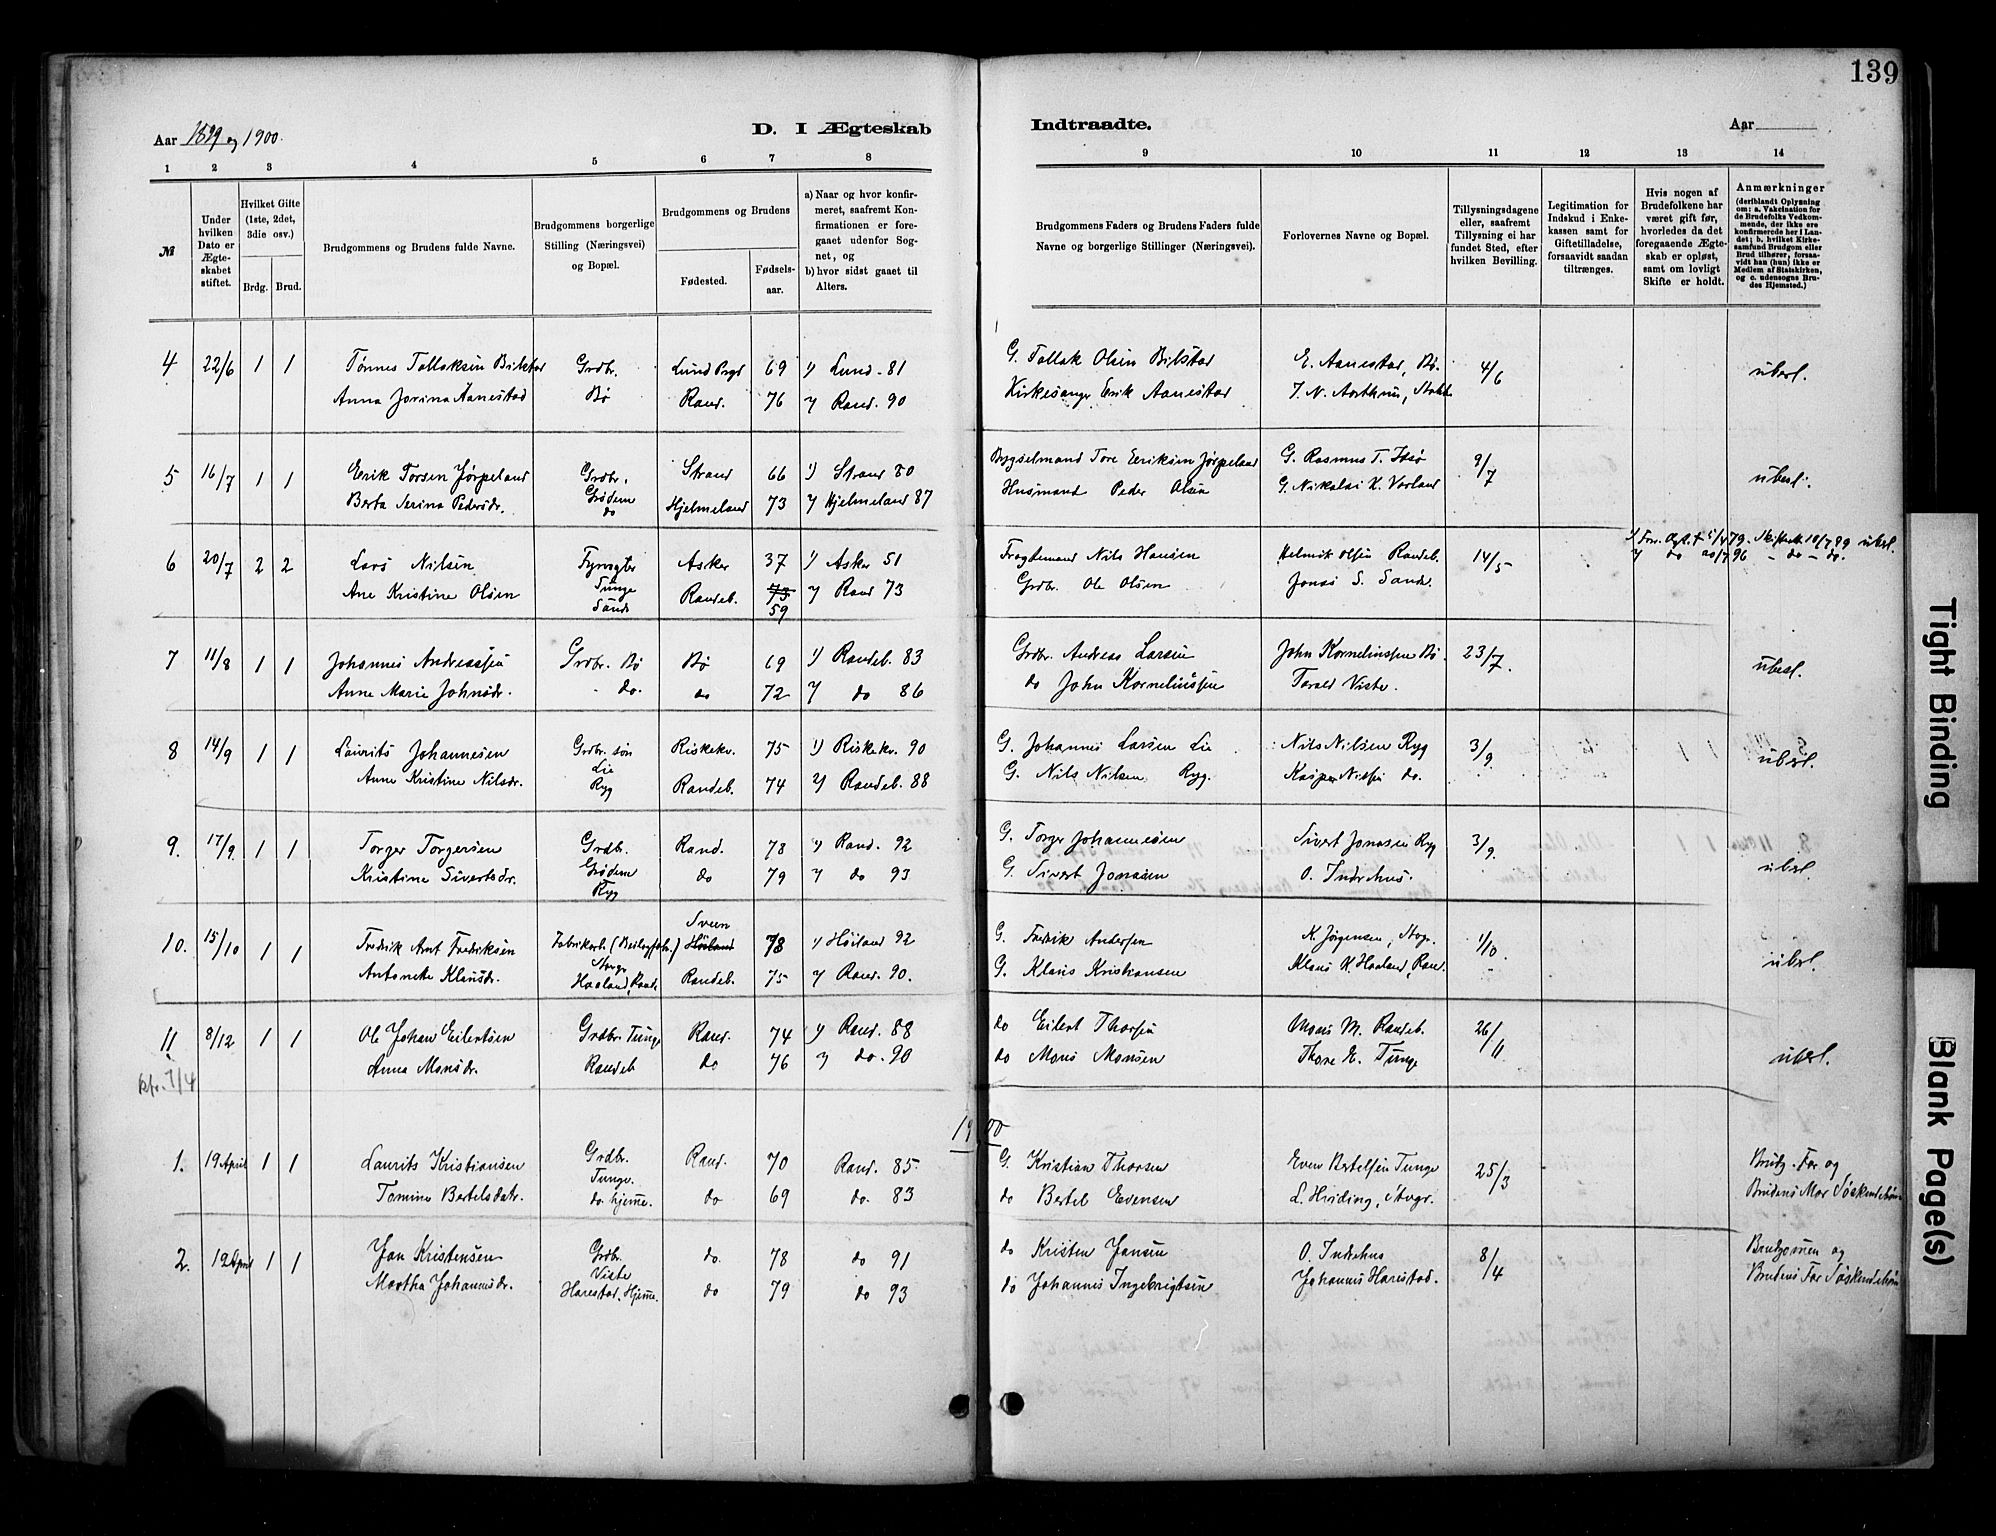 139
Aar 1899 og 1900.
D. I Ægteskab Indtraadte.
Aar
1 2 3 4 5 6 7 8 9 10 11 12 13 14
№
Under hvilken Dato er Ægteskabet stiftet.
Hvilket Gifte (1ste, 2det, 3die osv.)
Brdg. Brud.
Brudgommens og Brudens fulde Navne.
Brudgommens borgerlige Stilling (Næringsvei) og Bopæl.
Brudgommens og Brudens
Fødested.
Fødsels-aar.
a) Naar og hvor konfirmeret, saafremt Konfirmationen er foregaaet udenfor Sognet, og
b) hvor sidst gaaet til Alters.
Brudgommens Faders og Brudens Faders fulde Navne og borgerlige Stillinger (Næringsvei).
Forlovernes Navne og Bopæl.
Tillysningsdagene eller, saafremt Tillysning ei har fundet Sted, efter hvilken Bevilling.
Legitimation for Indskud i Enkekassen samt for Giftetilladelse, forsaavidt saadan tiltrænges.
Hvis nogen af Brudefolkene har været gift før, hvorledes da det foregaaende Ægteskab er opløst, samt om lovligt Skifte er holdt.
Anmærkninger (deriblandt Oplysning om: a. Vakcination for de Brudefolks Vedkommende, der ikke ere konfirmerede her i Landet; b. hvilket Kirkesamfund Brudgom eller Brud tilhører, forsaavidt han (hun) ikke er Medlem af Statskirken, og c. udensogns Brudes Hjemsted.)
4 22/6 1 1 Tønnes Tollaksen Bilstad Grdbr. Lund Prgd 69 1) Lund. 81 G. Tollak Olsen Bilstad E. Aanestad, Bø. 4/6 ubesl.
Anna Jorina Aanestad Bø Rand. 76 2) Rand. 90 Kirkesanger Erik Aanestad
5 16/7 1 1 Erik Torsen Jørpeland Grdbr. Strand 66 1) Strand 80 Bygselmand Tore Eriksen Jørpeland G. Rasmus T. 9/7 ubesl.
Berta Serina Pedersdr. Grødem do Hjelmeland 73 2) Hjelmeland 87 Husmand Peder Olsen G. Nikolai K. Vorland
6 20/7 2 2 Lars Nilsen Fyrvogter Asker 37 1) Asker 51 Fragtemand Nils Hansen Helmik Olsen Randeb. 14/5 5/4 79. 10/7 89 ubesl.
Ane Kristine Olsen Tunge Sande Randeb. 73 59 2) Rand 73 Grdbr. Ole Olsen Jonas S. Sande. 2) do 20/7 96 - do - do.
7 11/8 1 1 Johannes Andreassen Grdbr. Bø Bø 69 1) Randeb. 83 Grdbr. Andreas Larsen John Korneliussen Bø. 23/7. ubesl.
Anne Marie Johnsdr. do. do 72 2) do 86 do John Korneliussen Torald Viste.
8 14/9 1 1 Laurits Johannesen Grdbr. søn Lie Riskekv. 75 1) Riskekv. 90 G. Johannes Larsen Lie Nils Nilsen Ryg 3/9. ubesl.
Anne Kristine Nilsdr. Ryg Randeb. 74 2) Randeb. 88 G. Nils Nilsen Ryg. Kasper Nilsen do.
9. 17/9. 1 1 Torger Torgersen Grdb. Grødem Rand. 78 1) Rand. 92 G. Torger Johannesen Sivert Jonasen Ryg 3/9. ubesl.
Kristine Sivertsdr. Ryg do 79 2) do 93 G. Sivert Jonasen O. Indrehus.
10. 15/10 1 1 Fredrik Ant. Fredriksen Fabrikarb. Sveen Høiland 78 1) Høiland 92 G. Fredrik Andersen K. Jørgensen, Stvgr. 1/10. ubesl.
Antonette Klausdr. Haaland, Rande. Randeb. 75 2) Rand. 90. G. Klaus Kristiansen Klaus K. Haaland, Rand.
11. 8/12 1 1 Ole Johan Eilertsen Grdbr. Tunge Rand. 74 1) Rand. 88 do Eilert Thorsen Mons M. Randeb. 26/11 ubesl.
Anna Monsdr. Randeb do 76 2) do. 90 do Mons Monsen Thore E. Tunge
Kfr. 7/4
1900
1. 19 April 1 1 Laurits Kristiansen Grdbr. Tunge. Rand. 70 Rand. 85. G. Kristian Thorsen Even Bertelsen Tunge 25/3 Brutg. Far og
Tomine Bertelsdatr. do. hjeme. do 69 do. 83 do Bertel Evensen L. Hviding, Stvgr. Brudens Mor Søskendebørn
2. 19 April 1 1 Jan Kristensen Grdbr. Viste do. 78 do 91 do Kristen Jansen O. Indrehus 8/4 Brudgomen og
Martha Johannisdr. Harestad. Hjeme. do 79 do 93 do Johannis Ingebrigtsen Johannis Harestad. Brudens Far Søskendebørn
Tight Binding
Blank Page(s)